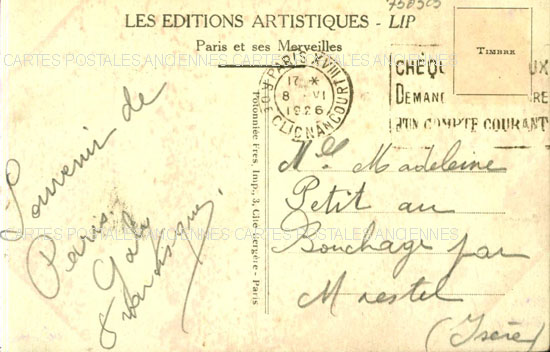 738303
LES EDITIONS ARTISTIQUES - LIP
Paris et ses Merveilles
TIMBRE
PARIS XVIII
17 *
8 - VI
1926
R. DE CLIGNANCOURT
CHÈQ UX
DEMAN RE
D'UN COMPTE COURANT
CARTES POSTALES ANCIENNES CARTES POSTALES ANCIENNES
Souvenir de
Paris
Polonniée Fres, Imp., 3, Cité-Bergère - Paris
Mlle Madeleine
Petit au
Bouchage par
Morestel
(Isère)
CARTES POSTALES ANCIENNES CARTES POSTALES ANCIENNES